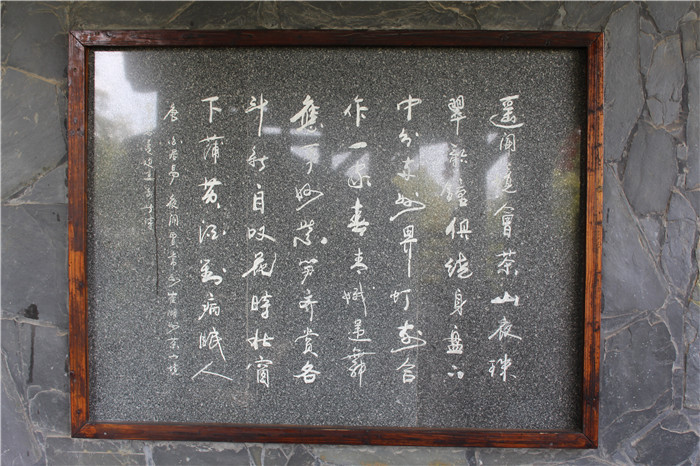 遥闻境會茶山夜珠
翠歌鐘俱绕身盘下
中分两州界灯前合
作一家春青娥递舞
應争妙紫笋齐赏各
斗新自叹花時北窗
下蒲黄酒对病眠人
唐白居易夜闻贾常州崔湖州茶山境